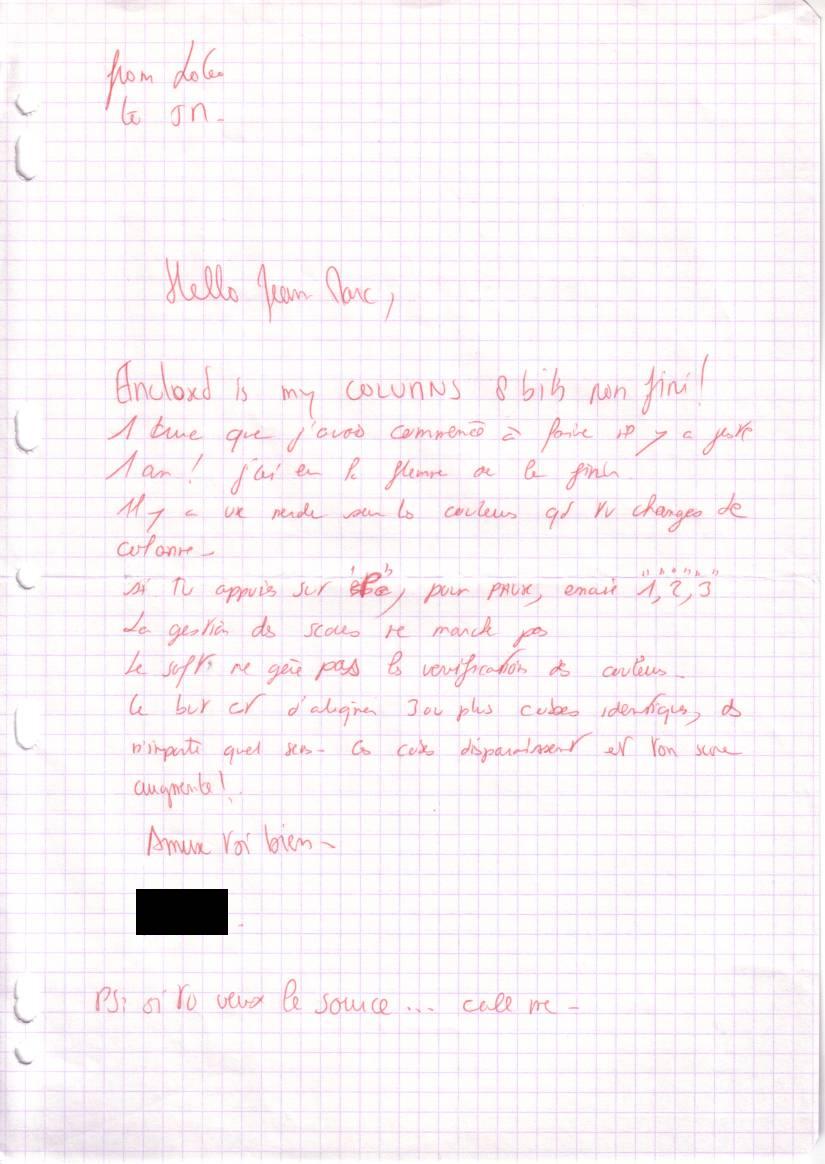 from
to JM.
Hello Jean Marc,
Enclosed is my COLUMNS 8 bits non fini!
1 truc que j'avais commencé à faire il y a juste
1 an! j'ai eu la flemme de le finir.
Il y a une merde sur les couleurs qd tu changes de
colonne.
si tu appuies sur "P", pour PAUSE, ensuite "1", "2", "3"
La gestion des scores ne marche pas
Le soft ne gère pas la vérification des couleurs.
Le but est d'aligner 3 ou plus cubes identiques, ds
n'importe quel sens. Ces cubes disparaissent et ton score
augmente!
Amuse toi bien.
PS: si tu veux le source... call me.